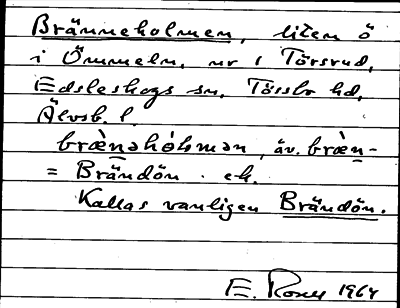 Bränneholmen, liten ö
i Ömmeln, nr 1 Törsrud,
Edsleskogs sn, Tössbo hd,
Älvsb. l.
bræ̀nəhɷ̀lmən, äv. bræ̀n-
= Brändön ek.
Kallas vanligen Brändön.
E. 1964